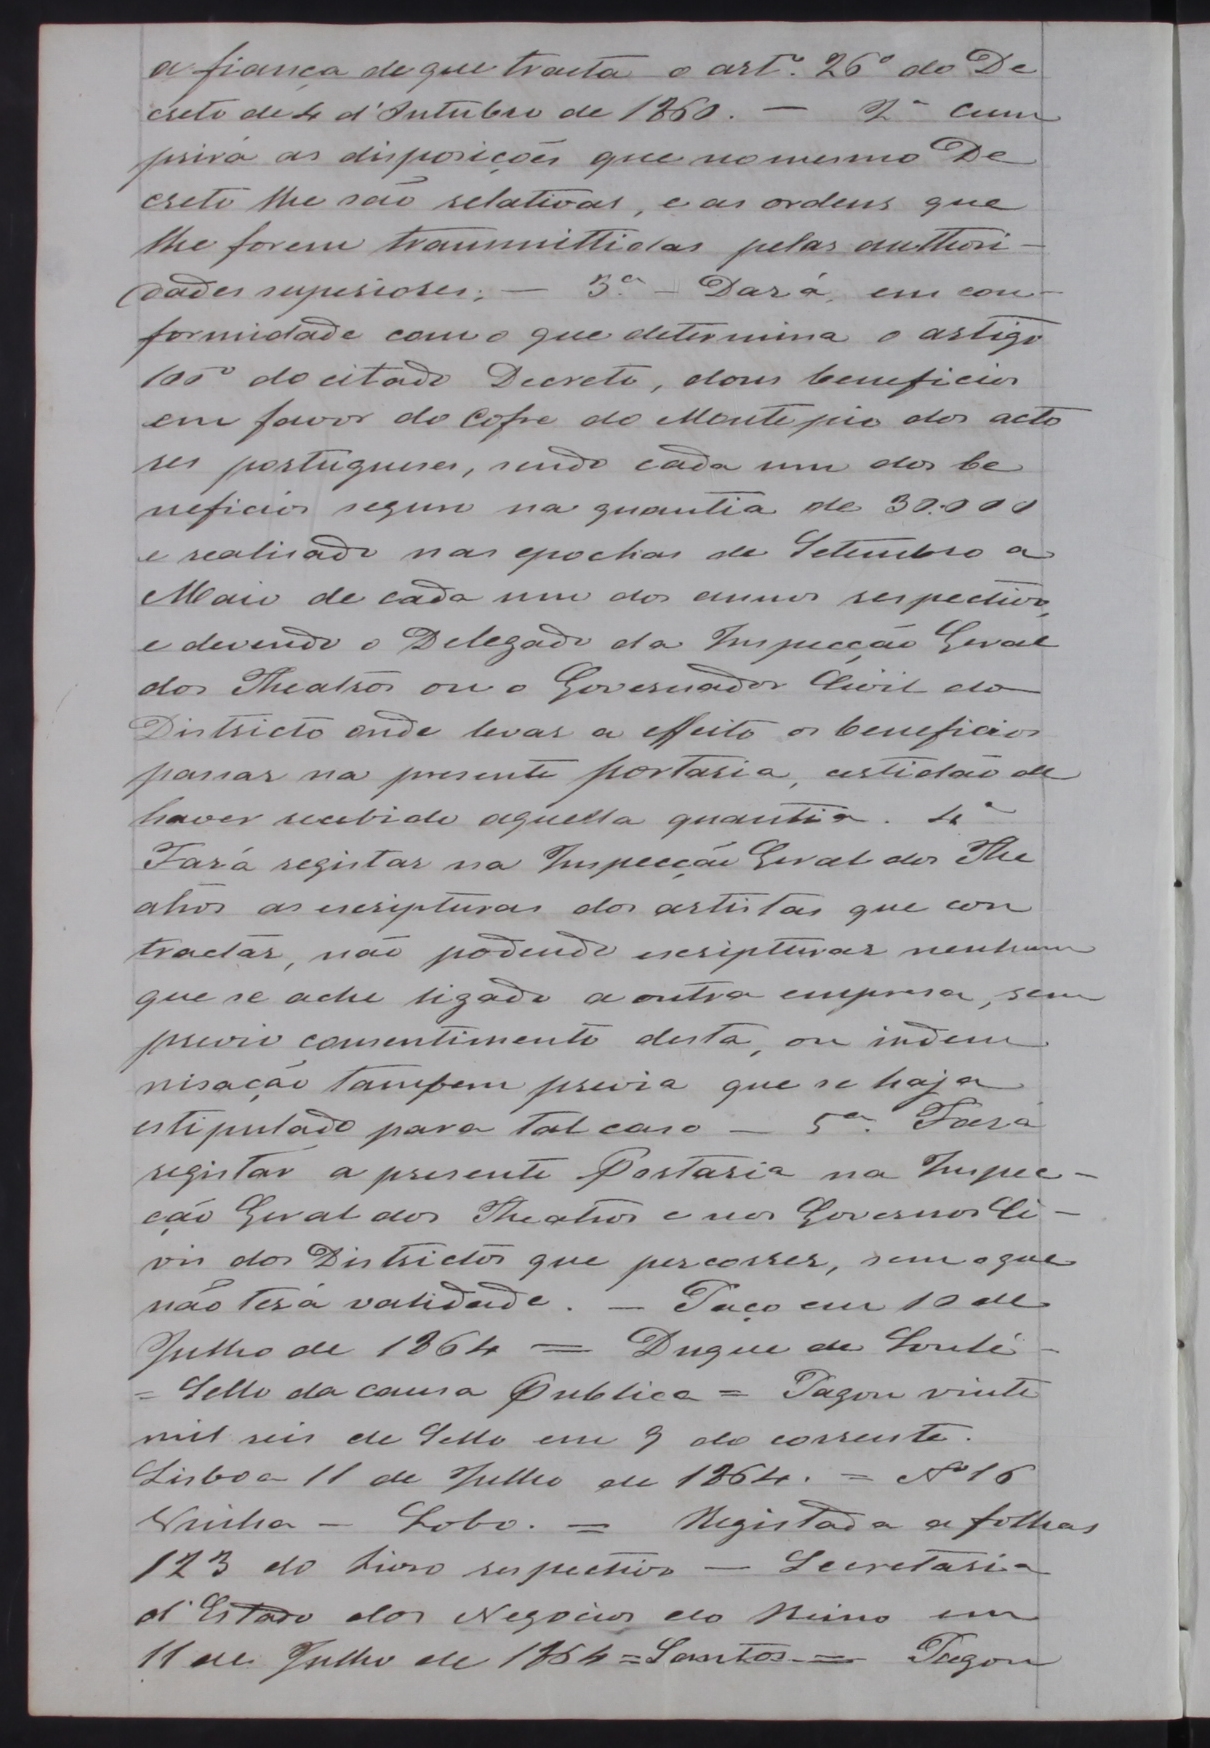 a fiança de que tracta o artº. 26º do De
creto de 4 d'Outubro de 1860. — 2ª Cum
prirá as disposições que no mesmo De
creto lhe são relativas, e as ordens que
lhe forem transmittidas pelas authori-
dades superiores; — 3.ª — Dará, em con-
formidade com o que determina o artigo
100º do citado Decreto, dous beneficios
em favor do Cofre do Monte pio dos acto
res portugueses, sendo cada um dos be
neficios seguro na quantia de 30.000
e realisado nas epochas de Setembro a
Maio de cada um dos annos respectivos,
e devendo o Delegado da Inspecção Geral
dos Theatros ou o Governador Civil do
Districto onde levar a effeito os beneficios
passar na presente portaria, certidão de
haver recebido aquella quantia. 4ª
Fará registar na Inspecção Geral dos The
atros as escripturas dos artistas que con
tractar, não podendo escripturar nenhum
que se ache ligado a outra empresa, sem
previo consentimento desta, ou indem
nisação tambem previa que se haja
estipulado para tal caso — 5ª. Fará
registar a presente Portaria na Inspec-
ção Geral dos Theatros e nos Governos Ci-
vis dos Districtos que percorrer, sem o que
não terá validade. — Paço em 10 de
Julho de 1864 = Duque de Loulé -
= Sello da causa Publica = Pagou vinte
mil reis de Sello em 9 do corrente.
Lisboa 11 de Julho de 1864. = Nº 16
— Lobo. = Registada a folhas
123 do Livro respectivo — Secretaria
d'Estado dos Negocios do Reino em
11 de Julho de 1864 = Santos = Pagou